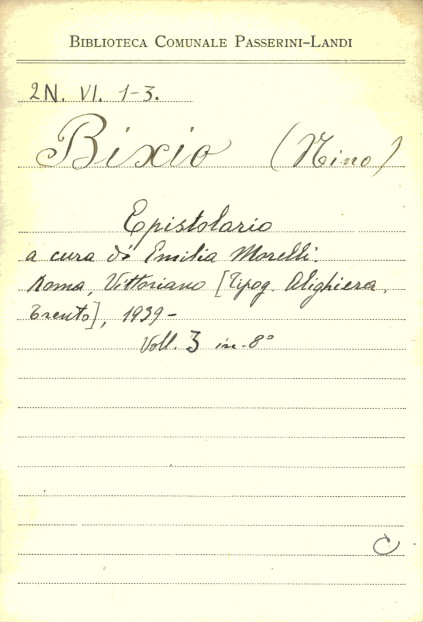 BIBLIOTECA COMUNALE PASSERINI-LANDI
2N. VI. 1-3.
Bixio (Nino)
Epistolario
a cura di Emilia Morelli.
Roma, Vittoriano [Tipog. Alighiera,
Trento], 1939-
Voll. 3 in-8°
C